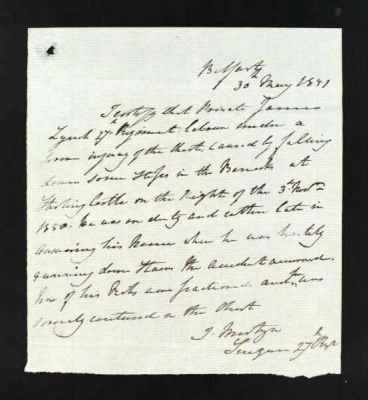 Belfast
30th May 1831
I certify that Private James
Lynch 27th Regiment labours under a
injury of the chest caused by falling
down some Steps in the Barracks at
Stirling Castle on the Night of the 3rd Novr
1830. he was on duty and rather late in
answering his Name when he was hastily
running down Stairs the accident occurred
One of his Ribs was fractured and was
severely contused on the Chest
Surgeon 27th Regt